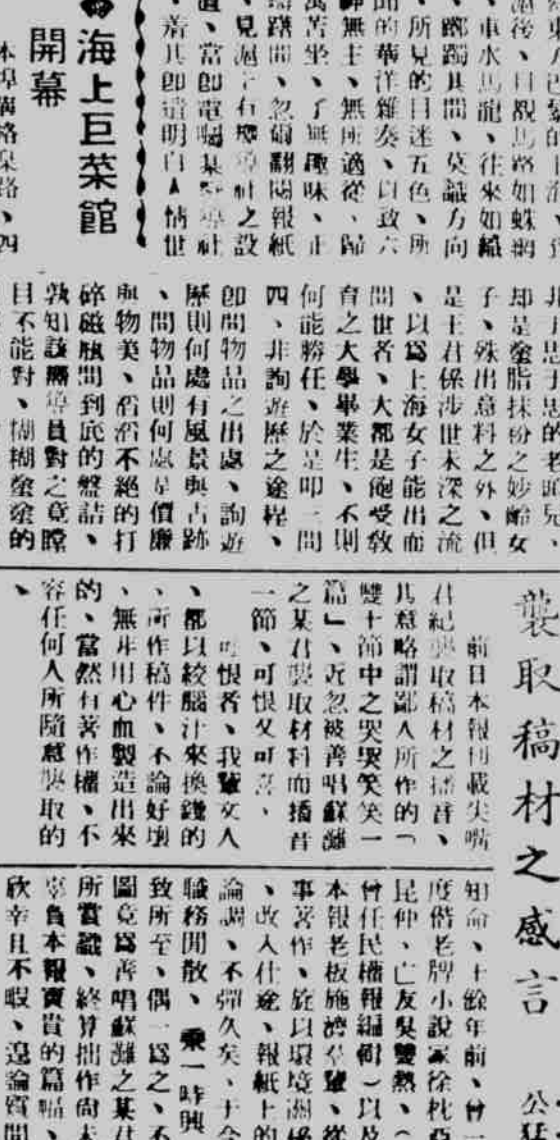 後、目覩馬路如蛛網
、車水馬龍、往來如織
、躑躅其間、莫識方向
、所見的目迷五色、所
聞的華洋雜奏、以致六
神無主、無所適從、歸
寓苦坐、了無趣味、正
躊躇間、忽爾翻閱報紙
、見滬上有嚮導社之設
置、當即電囑某嚮導社
、着其即遣明白人情世
海上巨菜館
開幕
却是塗脂抹粉之妙齡女
子、殊出意料之外、但
是王君係涉世未深之流
、以爲上海女子能出而
問世者、大都是飽受敎
育之大學畢業生、不則
何能勝任、於是叩一問
四、非詢遊歷之途程、
卽問物品之出處、詢遊
歷則何處有風景與古跡
、問物品則何處是價廉
與物美、滔滔不絕的打
碎磁瓶問到底的盤詰、
孰知該嚮導員對之竟瞠
目不能對、糊糊塗塗的
襲取稿材之感言
前日本報刊載尖嘴
君紀襲取稿材之播音、
其意略謂鄙人所作的（
雙十節中之哭哭笑笑一
篇」、近忽被善唱蘇灘
之某君襲取材料而播音
一節、可恨又可喜、
可恨者、我輩文人
、都以絞腦汁來換錢的
、所作稿件、不論好壞
、無非用心血製造出來
的、當然有著作權、不
容任何人所隨意襲取的
、
知命、十餘年前、曾一
度偕老牌小說家徐枕亞
昆仲、亡友吳雙熱、（
曾任民權報編輯）以及
本報老板施濟羣輩、從
事著作、旋以環境關係
、改入仕途、報紙上的
論調、不彈久矣、于今
職務閒散、乘一時興
致所至、偶一爲之、不
圖竟爲善唱蘇灘之某君
所賞識、終算拙作尙未
辜負本報寶貴的篇幅、
欣幸且不暇、遑論質問